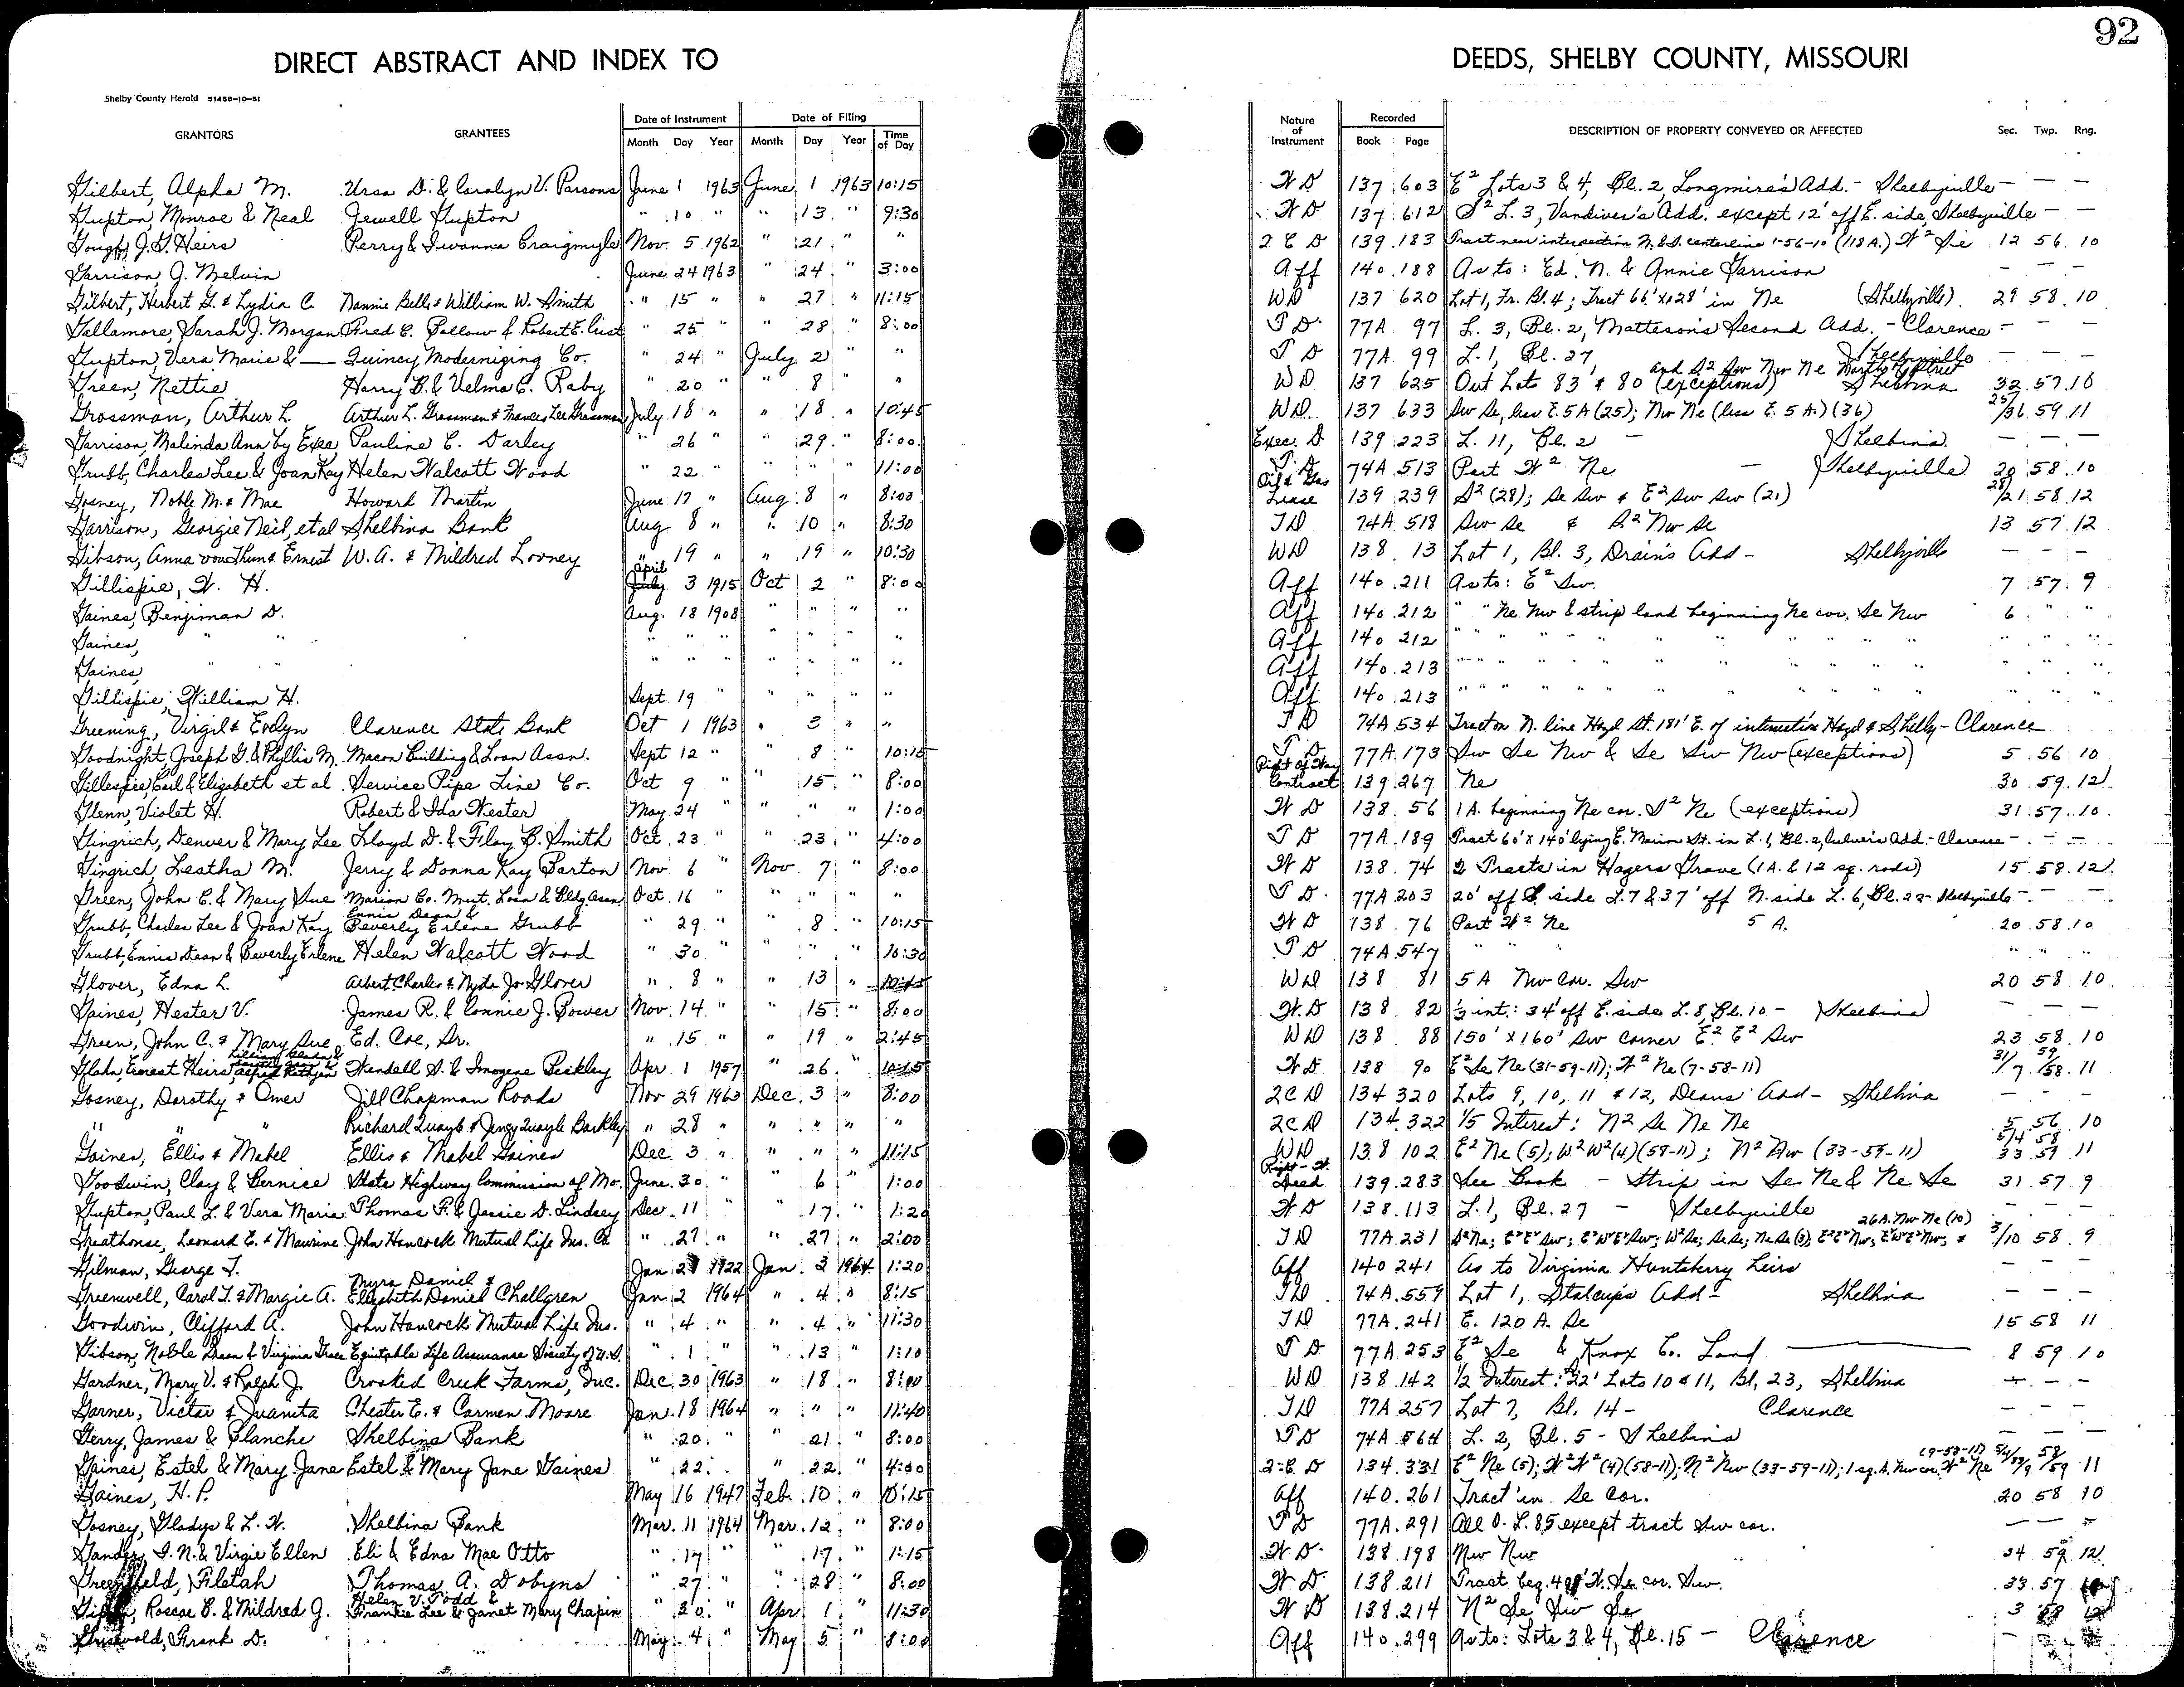 92
DIRECT ABSTRACT AND INDEX TO DEEDS, SHELBY COUNTY, MISSOURI
Shelby County Herald 51458-10-51
GRANTORS GRANTEES Date of Instrument Date of Filing Nature of Instrument Recorded DESCRIPTION OF PROPERTY CONVEYED OR AFFECTED Sec. Twp. Rng.
Month Day Year Month Day Year Time of Day Book Page
Gilbert, Alpha M. Ursa D. & Carolyn V. Parsons June 1 1963 June 1 1963 10:15 W D 137 603 E² Lots 3 & 4, Bl. 2, Longmire's Add. - Shelbyville - — —
Gupton, Monroe & Neal Jewell Gupton " 10 " " 13 " 9:30 W D 137 612 S² L. 3, Vandiver's Add. except 12' off E. side, Shelbyville - — —
Gough, J.G. Heirs Perry & Iwanna Craigmyle Nov. 5 1962 " 21 " " 2 C D 139 183 Tract near intersection N. & S. centerline 1-56-10 (118 A.) W² Se 12 56 10
Garrison, J. Melvin June 24 1963 " 24 " 3:00 Aff 140 188 As to: Ed. N. & Annie Garrison — — —
Gilbert, Herbert G. & Lydia C. Nannie Belle & William W. Smith " 15 " " 27 " 11:15 WD 137 620 Lot 1, Fr. Bl. 4; Tract 66' x 128' in Ne (Shelbyville) 29 58 10
Gallamore, Sarah J. Morgan Fred C. Bollow & Robert E. " 25 " " 28 " 8:00 T D 77A 97 L. 3, Bl. 2, Matteson's Second Add. - Clarence - — —
Gupton, Vera Marie & — Quincy Modernizing Co. " 24 " July 2 " " T D 77A 99 L. 1, Bl. 27, Shelbyville — — —
Green, Nettie Harry B. & Velma C. Raby " 20 " " 8 " " WD 137 625 Out Lots 83 & 80 (exceptions) and S² Sw Nw Ne North of Street Shelbina 32 57 10
Grossman, Arthur L. Arthur L. Grossman & Frances Lee Grossman July 18 " " 18 " 10:45 WD 137 633 Sw Se, less E. 5 A (25); Nw Ne (less E. 5 A.) (36) 25/36 59 11
Garrison, Malinda Ann by Exec Pauline C. Darley " 26 " " 29 " 8:00 Exec. D 139 223 L. 11, Bl. 2 — Shelbina — — —
Grubb, Charles Lee & Joan Kay Helen Walcott Wood " 22 " " " " 11:00 T D 74A 513 Part W² Ne — Shelbyville 20 58 10
Gosney, Noble M. & Mae Howard Martin June 17 " Aug 8 " 8:00 Oil & Gas Lease 139 239 S² (28); Se Sw & E² Sw Sw (21) 28/21 58 12
Garrison, Georgie Neil, et al Shelbina Bank Aug 8 " " 10 " 8:30 TD 74A 518 Sw Se & S² Nw Se 13 57 12
Gibson, Anna vow Thun & Ernest W. A. & Mildred Looney " 19 " " 19 " 10:30 WD 138 13 Lot 1, Bl. 3, Drain's Add - Shelbyville — — —
Gillispie, W. H. April July 3 1915 Oct 2 " 8:00 Aff 140 211 As to: E² Sw. 7 57 9
Gaines, Benjiman D. Aug. 18 1908 " " " " Aff 140 212 " " Ne Nw & strip land beginning Ne cor. Se Nw 6 " "
Gaines, " " " " " " " " " Aff 140 212 " " " " " " " " " " " "
Gaines, " " " " " " " " " Aff 140 213 " " " " " " " " " " " "
Gillispie, William H. Sept 19 " " " " " Aff 140 213 " " " " " " " " " " " "
Greening, Virgil & Evelyn Clarence State Bank Oct 1 1963 " 3 " " T D 74A 534 Tract on N. line Hoyd St. 181' E. of intersection Hoyd & Shelby - Clarence
Goodnight, Joseph G. & Phyllis M. Macon Building & Loan Assn. Sept 12 " " 8 " 10:15 T D 77A 173 Sw Se Nw & Se Sw Nw (exceptions) 5 56 10
Gillespie, Carl & Elizabeth et al Service Pipe Line Co. Oct 9 " " 15 " 8:00 Right of Way Contract 139 267 Ne 30 59 12
Glenn, Violet H. Robert & Ida Hester May 24 " " " " 1:00 W D 138 56 1 A. beginning Ne cor. S² Ne (exceptions) 31 57 10
Gingrich, Denver & Mary Lee Lloyd D. & Floy B. Smith Oct 23 " " 23 " 4:00 T D 77A 189 Tract 60' x 140' lying E. Marion St. in L. 1, Bl. 2, Culver's Add. - Clarence - — —
Gingrich, Leatha M. Jerry & Donna Kay Barton Nov. 6 " Nov. 7 " 8:00 W D 138 74 2 Tracts in Hagers Grove (1 A. & 12 sq. rods) 15 58 12
Green, John C. & Mary Sue Marion Co. Mut. Loan & Bldg Assn Oct. 16 " " " " " T D 77A 203 20' off S. side L. 7 & 37' off N. side L. 6, Bl. 22 - Shelbyville - — —
Grubb, Charles Lee & Joan Kay Ennis Dean & Beverly Erlene Grubb " 29 " " 8 " 10:15 W D 138 76 Part W² Ne 5 A. 20 58 10
Grubb, Ennis Dean & Beverly Erlene Helen Walcott Wood " 30 " " " " 10:30 T D 74A 547 " " " " " "
Glover, Edna L. Albert Charles & Nyda Jo Glover " 8 " " 13 " 10:45 WD 138 81 5 A Nw Cor. Sw 20 58 10
Gaines, Hester V. James R. & Connie J. Bower Nov. 14 " " 15 " 8:00 W. D 138 82 ½ int.: 34' off E. side L. 8, Bl. 10 - Shelbina — — —
Green, John C. & Mary Sue Ed. Coe, Sr. " 15 " " 19 " 2:45 WD 138 88 150' x 160' Sw corner E² E² Sw 23 58 10
Glahn, Ernest Heirs, Alfred Rathjen Wendell S. & Imogene Beckley Apr. 1 1957 " 26 " 10:15 W D 138 90 E² Se Ne (31-59-11); W² Ne (7-58-11) 31/7 59/58 11
Gosney, Dorothy & Omer Jill Chapman Roads Nov 29 1963 Dec. 3 " 8:00 2 C D 134 320 Lots 9, 10, 11 & 12, Deans Add - Shelbina — — —
" " " Richard Quayle & Jency Quayle Barkley " 28 " " " " " 2 C D 134 322 1/5 Interest: N² Se Ne Ne 5 56 10
Gaines, Ellis & Mabel Ellis & Mabel Gaines Dec. 3 " " " " 11:15 WD 138 102 E² Ne (5); W² W² (4) (58-11); N² Nw (33-59-11) 5/4 58 33 59 11
Goodwin, Clay & Bernice State Highway Commission of Mo. June 30 " " 6 " 1:00 Right-W. Deed 139 283 See Book - Strip in Se Ne & Ne Se 31 57 9
Gupton, Paul L. & Vera Marie Thomas F. & Jessie D. Lindsey Dec. 11 " " 17 " 1:20 W D 138 113 L. 1, Bl. 27 - Shelbyville — — —
Greathouse, Leonard E. & Maurine John Hancock Mutual Life Ins. Co. " 27 " " 27 " 2:00 TD 77A 231 S² Ne; E² E² Sw; E² W² E² Sw; W² Se; Se Se; Ne Se (3); E² E² Nw; E² W² E² Nw; & 26 A. Nw Ne (10) 3/10 58 9
Gilman, George T. Jan 1922 Jan 3 1964 1:20 Aff 140 241 As to Virginia Huntsberry Heirs — — —
Greenwell, Carol T. & Margie A. Myra Daniel & Elizabeth Daniel Challgren Jan 2 1964 " 4 " 8:15 TD 74A 559 Lot 1, Stalcup's Add - Shelbina — — —
Goodwin, Clifford A. John Hancock Mutual Life Ins. " 4 " " 4 " 11:30 TD 77A 241 E. 120 A. Se 15 58 11
Gibson, Noble Dean & Virginia Grace Equitable Life Assurance Society of U.S. " 1 " " 13 " 1:10 T D 77A 253 E² Se & Knox Co. Land — 8 59 10
Gardner, Mary V. & Ralph J. Crooked Creek Farms, Inc. Dec. 30 1963 " 18 " 8:00 WD 138 142 1/2 Interest: 22' Lots 10 & 11, Bl. 23, Shelbina — — —
Garner, Victor & Juanita Chester E. & Carmen Moore Jan. 18 1964 " " " 11:40 TD 77A 257 Lot 7, Bl. 14 - Clarence — — —
Gerry, James & Blanche Shelbina Bank " 20 " " 21 " 8:00 T D 74A 564 L. 2, Bl. 5 - Shelbina — — —
Gaines, Estel & Mary Jane Estel & Mary Jane Gaines " 22 " " 22 " 4:00 2 C D 134 331 E² Ne (5); W² W² (4) (58-11); N² Nw (33-59-11); 1 sq. A. Nw cor. W² Ne (9-58-11) 5/4/33/9 58/59 11
Gaines, H. P. May 16 1947 Feb. 10 " 10:15 Aff 140 261 Tract in Se Cor. 20 58 10
Gosney, Gladys & L. W. Shelbina Bank Mar. 11 1964 Mar. 12 " 8:00 T D 77A 291 All O. L. 85 except tract Sw cor. — — —
Gander, I. N. & Virgie Ellen Eli & Edna Mae Otto " 17 " " 17 " 1:15 W D 138 198 Nw Nw 24 59 12
Greenfield, Filetah Thomas A. Dobyns " 27 " " 28 " 8:00 W D 138 211 Tract beg. W. Se cor. Sw. 33 57
Roscoe B. & Mildred J. Helen V. Todd & Frankie Lee & Janet Mary Chapin " 30 " Apr 1 " 11:30 W D 138 214 N² Se Sw Se 3
Griswold, Frank D. May 4 " May 5 " 8:00 Aff 140 299 As to: Lots 3 & 4, Bl. 15 - Clarence —